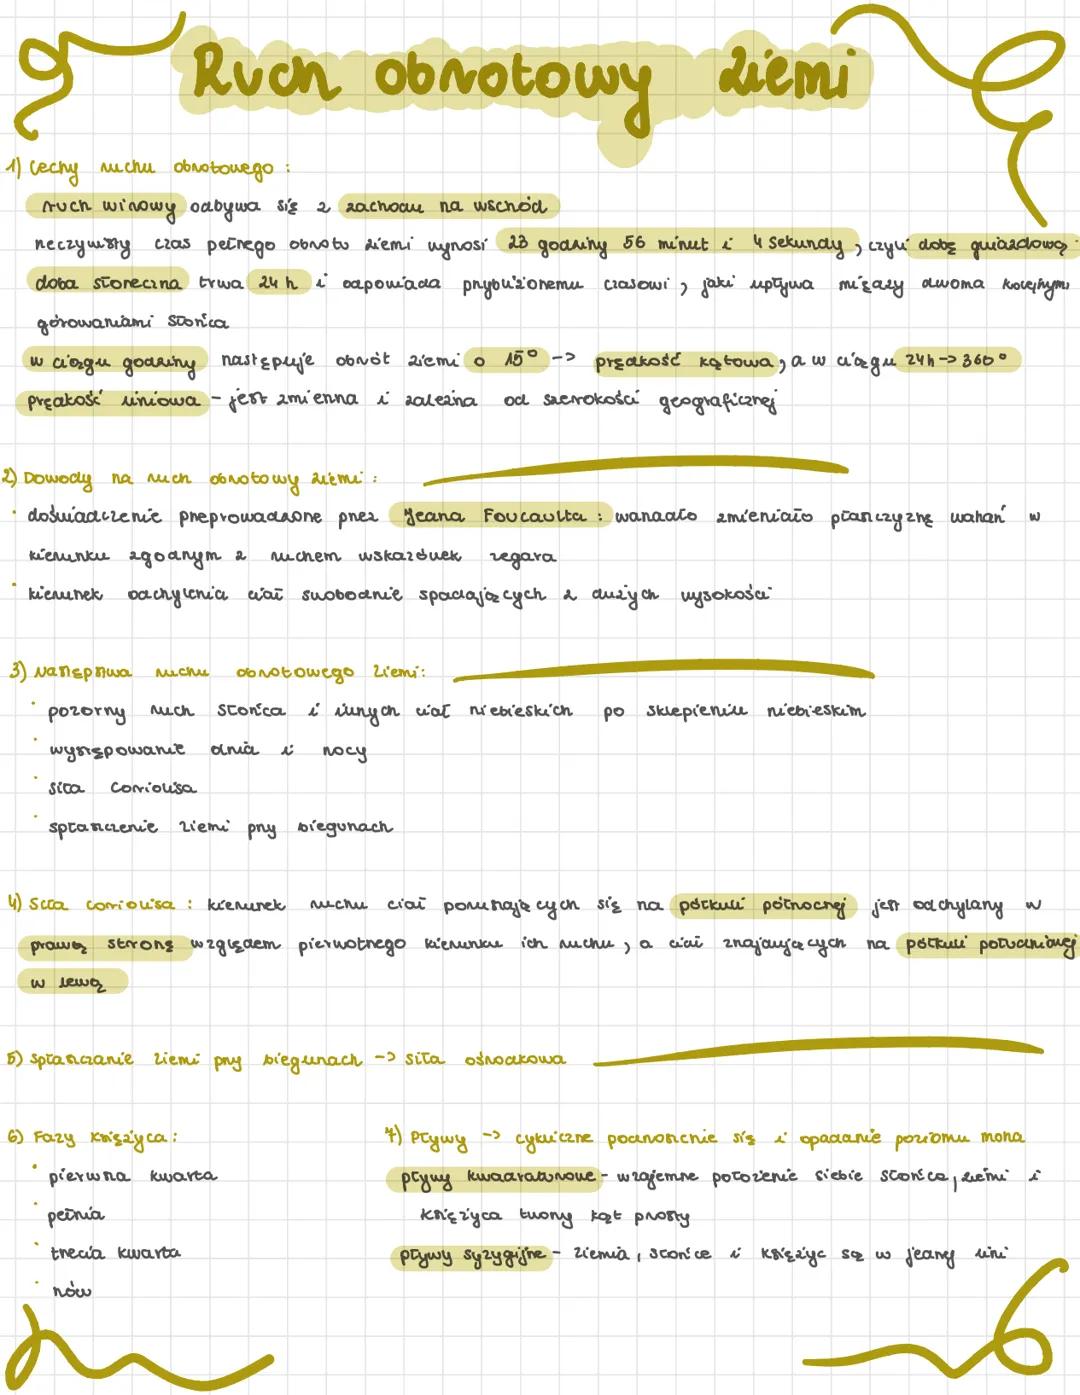 Ruch obrotowy Ziemi
1) Cechy ruchu obrotowego :
ruch wirowy odbywa się z zachodu na wschód
rzeczywisty czas pełnego obrotu Ziemi wynosi 23 godziny 56 minut i 4 sekundy, czyli dobę gwiazdową
doba słoneczna trwa 24 h i odpowiada przybliżonemu czasowi, jaki upływa między dwoma kolejnymi
górowaniami Słońca
w ciągu godziny następuje obrót Ziemi o 15° -> prędkość kątowa, a w ciągu 24h -> 360°
prędkość liniowa - jest zmienna i zależna od szerokości geograficznej
2) Dowody na ruch obrotowy Ziemi :
· doświadczenie przeprowadzone przez Jeana Foucaulta : wahadło zmieniało płaszczyznę wahań w
kierunku zgodnym z ruchem wskazówek zegara
· kierunek odchylenia ciał swobodnie spadających z dużych wysokości
3) Następstwa ruchu obrotowego Ziemi:
· pozorny ruch Słońca i innych ciał niebieskich po sklepieniu niebieskim
· występowanie dnia i nocy
· siła Corriolisa
· spłaszczenie Ziemi przy biegunach
4) Siła Corriolisa : kierunek ruchu ciał poruszających się na półkuli północnej jest odchylany w
prawą stronę względem pierwotnego kierunku ich ruchu, a ciał znajdujących na półkuli południowej
w lewą
5) Spłaszczanie Ziemi przy biegunach -> siła ośrodkowa
6) Fazy Księżyca :
· pierwsza kwarta
· pełnia
· trzecia kwarta
· nów
7) Pływy -> cykliczne podnoszenie się i opadanie poziomu morza
pływy kwadraturowe - wzajemne położenie siebie Słońca, Ziemi i
Księżyca tworzy kąt prosty
pływy syzygijne - Ziemia, Słońce i Księżyc są w jednej linii